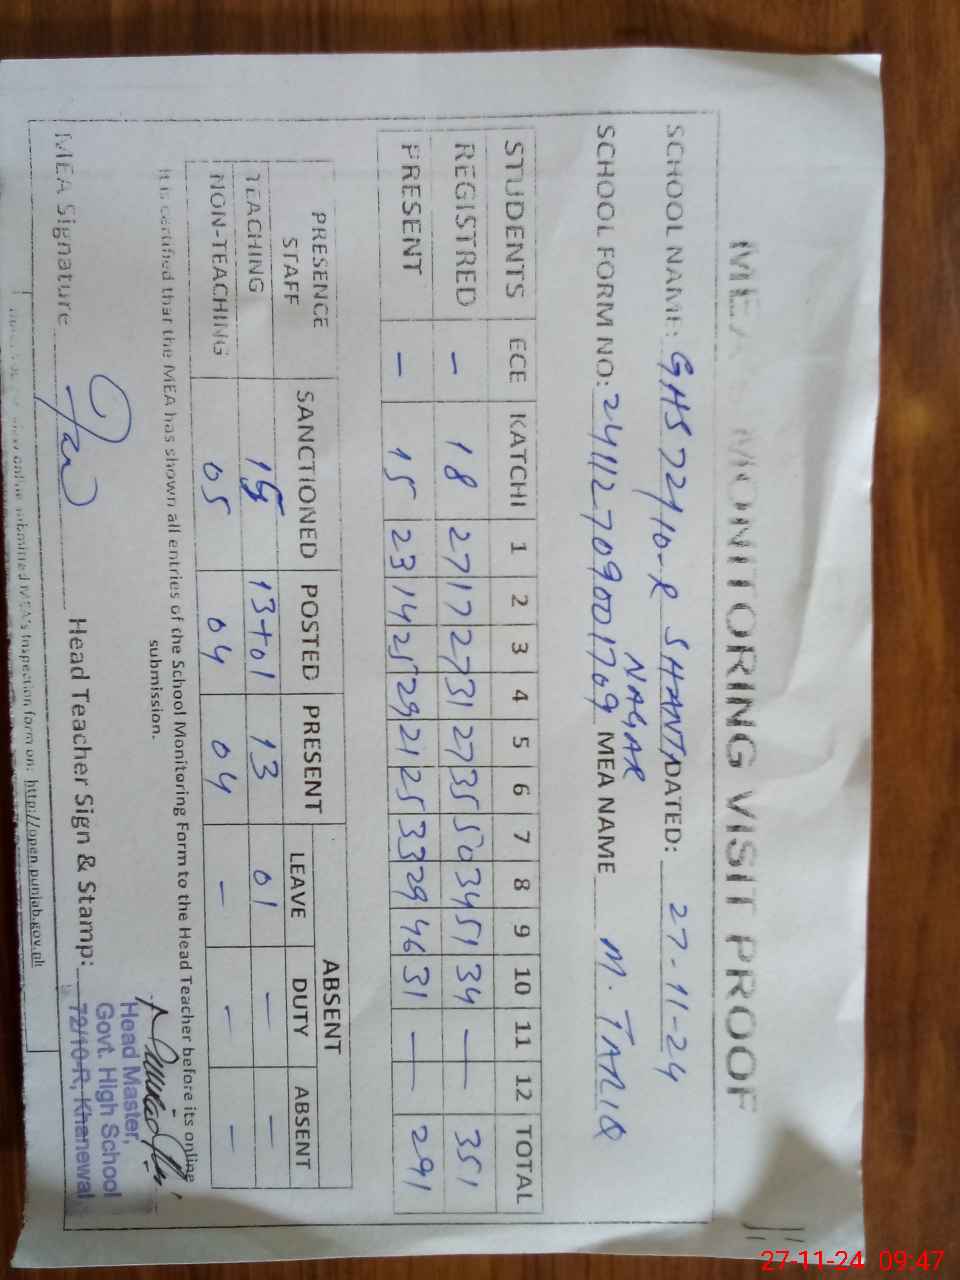 MEA MONITORING VISIT PROOF
SCHOOL NAME: GHS 72/10-R SHANTI NAGAR DATED: 27-11-24
SCHOOL FORM NO: 24112709001769 MEA NAME M. TARIQ
STUDENTS ECE KATCHI 1 2 3 4 5 6 7 8 9 10 11 12 TOTAL
REGISTRED - 18 27 17 27 31 27 35 50 34 51 34 — — 351
PRESENT - 15 23 14 25 29 21 25 33 29 46 31 — — 291
PRESENCE STAFF SANCTIONED POSTED PRESENT ABSENT
LEAVE DUTY ABSENT
TEACHING 15 13+01 13 01 - -
NON-TEACHING 05 04 04 - - -
It is certified that the MEA has shown all entries of the School Monitoring Form to the Head Teacher before its online
submission.
MEA Signature Head Teacher Sign & Stamp:
Head Master,
Govt. High School
72/10-R, Khanewal
online submitted MEA's inspection form on: http://open.punjab.gov.pk
27-11-24 09:47